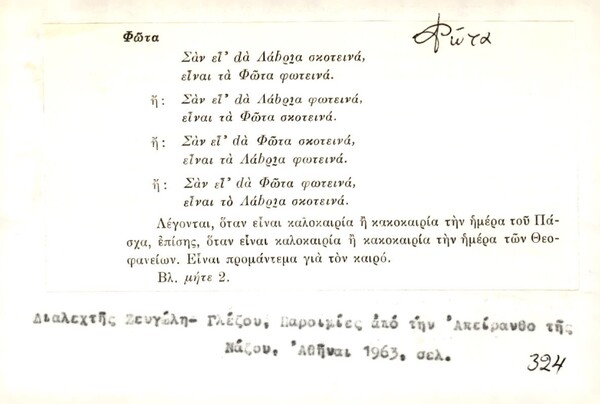 Φῶτα
Φῶτα
Σὰν εἶ' dὰ Λάbρι̯α σκοτεινά,
εἶναι τὰ Φῶτα φωτεινά.
ἤ: Σὰν εἶ' dὰ Λάbρι̯α φωτεινά,
εἶναι τὰ Φῶτα σκοτεινά.
ἤ: Σὰν εἶ' dὰ Φῶτα σκοτεινά,
εἶναι τὰ Λάbρι̯α φωτεινά.
ἤ: Σὰν εἶ' dὰ Φῶτα φωτεινά,
εἶναι τὸ Λάbρι̯α σκοτεινά.
Λέγονται, ὅταν εἶναι καλοκαιρία ἢ κακοκαιρία τὴν ἡμέρα τοῦ Πά-
σχα, ἐπίσης, ὅταν εἶναι καλοκαιρία ἢ κακοκαιρία τὴν ἡμέρα τῶν Θεο-
φανείων. Εἶναι προμάντεμα γιὰ τὸν καιρό.
Βλ. μήτε 2.
Διαλεχτῆς Ζευγώλη- Γλέζου, Παροιμίες ἀπό την Ἀπείρανθο τῆς
Νάξου, Ἀθῆναι 1963, σελ. 324